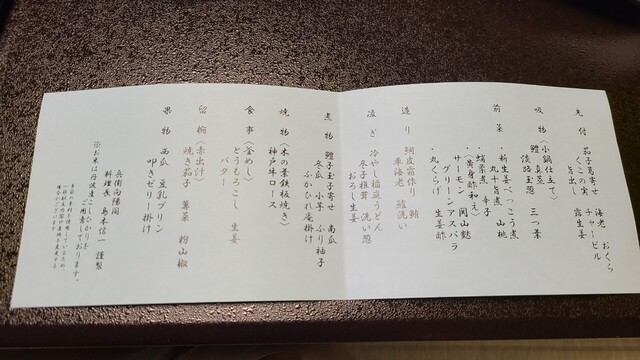 先付 茄子葛寄せ 海老 おくら
くこの実 チャービル
旨出し 生姜
吸物 〈小鍋仕立て〉
鱧 真蒸
淡路玉葱 三つ葉
前菜 ・新生姜べっこう煮
・丸十旨煮 山桃
・蛸柔煮 辛子
・〈黄身酢和え〉
サーモン 岡山麩
グリーンアスパラ
・丸くらげ 生姜酢
造り 鯛皮霜作り 鮪
車海老 鱸洗い
凌ぎ 冷やし稲庭うどん
冬子椎茸 洗い葱
おろし生姜
煮物 鱧子玉子寄せ 南瓜
冬瓜 小芋 ふり柚子
ふかひれ庵掛け
焼物 〈木の葉鉄板焼き〉
神戸牛ロース
食事 〈釜めし〉
とうもろこし 生姜
バター
留椀 〈赤出汁〉
焼き茄子 蓴菜 粉山椒
果物 西瓜 豆乳プリン
叩きゼリー掛け
※お米は丹波産こしひかりを
ご用意しております。
兵衛向陽閣
料理長 島本信一 謹製